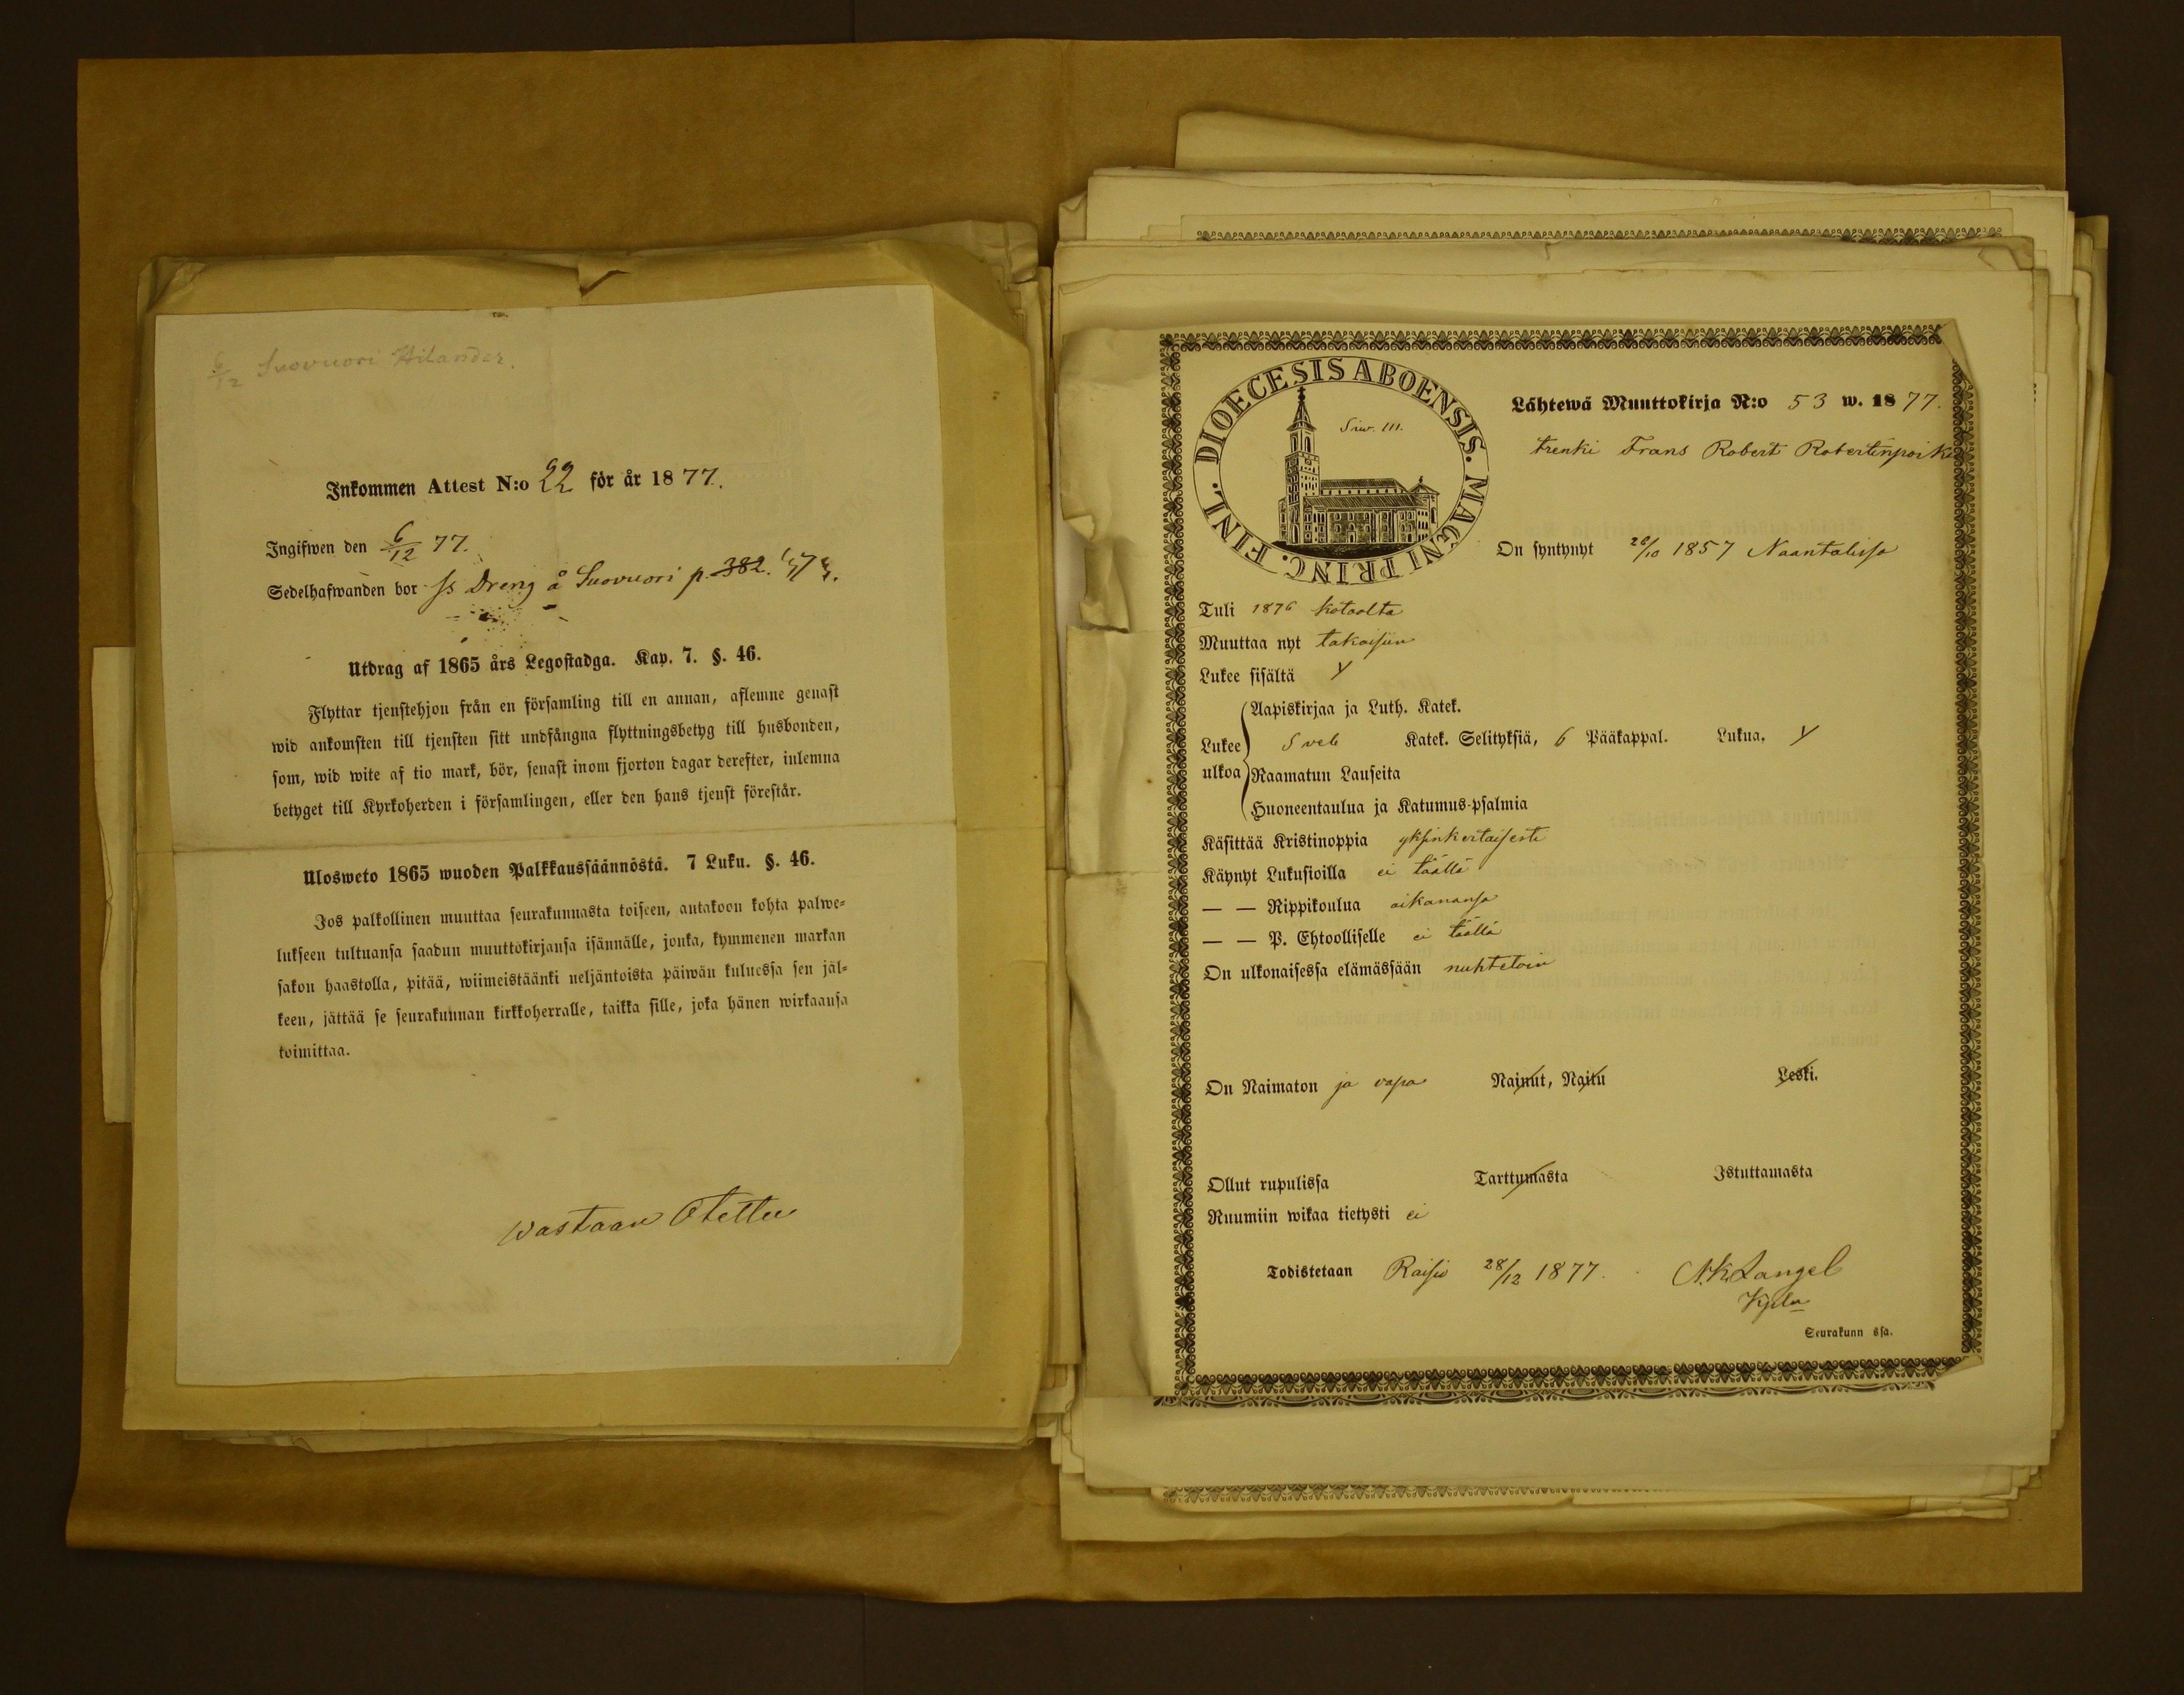 6/12 Suovuori Hilander.
Inkommen Attest N:o 22 för år 1877.
Ingifwen den 6/12 77.
Sedelhafwanden bor ss Dreng å Suovuori p. 382.
Utdrag af 1865 års Legostadga. Kap. 7. §. 46.
Flyttar tjenstehjon från en församling till en annan, aflemne genast
wid ankomsten till tjensten sitt undfångna flyttningsbetyg till husbonden,
som, wid wite af tio mark, bör, senast inom fjorton dagar derefter, inlemna
betyget till Kyrkoherden i församlingen, eller den hans tjenst förestår.
Ulosweto 1865 wuoden Palkkaussäännöstä. 7 Luku. §. 46.
Jos palkollinen muuttaa seurakunnasta toiseen, antakoon kohta palwe=
lukseen tultuansa saadun muuttokirjansa isännälle, jonka, kymmenen markan
sakon haastolla, pitää, wiimeistäänki neljäntoista päiwän kuluessa sen jäl=
keen, jättää se seurakunnan kirkkoherralle, taikka sille, joka hänen wirkaansa
toimittaa.
Wastaan Otettu
DIOECESIS ABOENSIS. MAGNI PRINC. FINL.
Siw. III.
Lähtewä Muuttokirja N:o 53 w. 1877.
trenki Frans Robert Robertinpoika
On syntynyt 28/10 1857 Naantalissa
Tuli 1876 kotoolta
Muuttaa nyt takaisiin
Lukee sisältä y
Aapiskirjaa ja Luth. Katek.
Lukee Sveb Katek. Selityksiä, 6 Pääkappal. Lukua. y
ulkoa Raamatun Lauseita
Huoneentaulua ja Katumus-psalmia
Käsittää Kristinoppia yksinkertaisesti
Käynyt Lukusioilla ei täällä
— — Rippikoulua aikanansa
— — P. Ehtoolliselle ei täällä
On ulkonaisessa elämässään nuhtetoin
On Naimaton ja vapa Nainut, Naitu Leski.
Ollut rupulissa Tarttumasta Istuttamasta
Ruumiin wikaa tietysti ei
Todistetaan Raisio 28/12 1877. A.K. Langel
Seurakunn ssa.